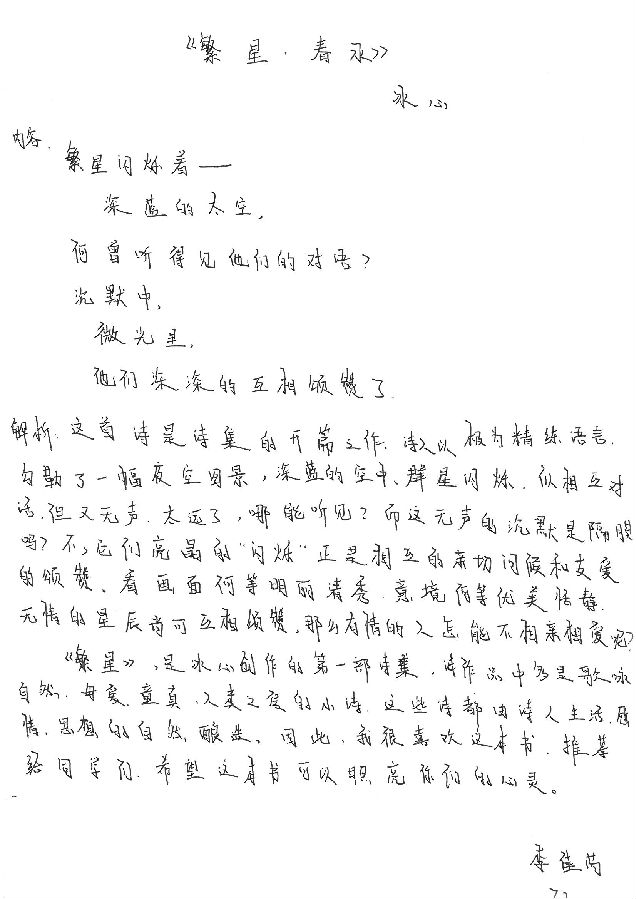 《繁星·春水》
冰心
内容.
繁星闪烁着——
深蓝的太空,
何曾听得见他们的对语?
沉默中,
微光里,
他们深深的互相颂赞了.
解析.这首诗是诗集的开篇之作.诗人以极为精练语言.
勾勒了一幅夜空图景,深蓝的空中、群星闪烁.似相互对
话.但又无声.太远了,哪能听见?而这无声的沉默是隔膜
吗?不,它们亮晶的“闪烁”正是相互的亲切问候和友爱
的颂赞.看画面何等明丽清秀.意境何等优美恬静.
无情的星辰尚可互相颂赞,那么有情的人怎能不相亲相爱呢?
《繁星》,是冰心创作的第一部诗集,诗作品中多是歌咏
自然.母爱.童真.人类之爱的小诗.这些诗都由诗人生活.感
情.思想的自然酿造.因此.我很喜欢这本书.推荐
给同学们.希望这本书可以照亮你们的心灵。
李佳芮